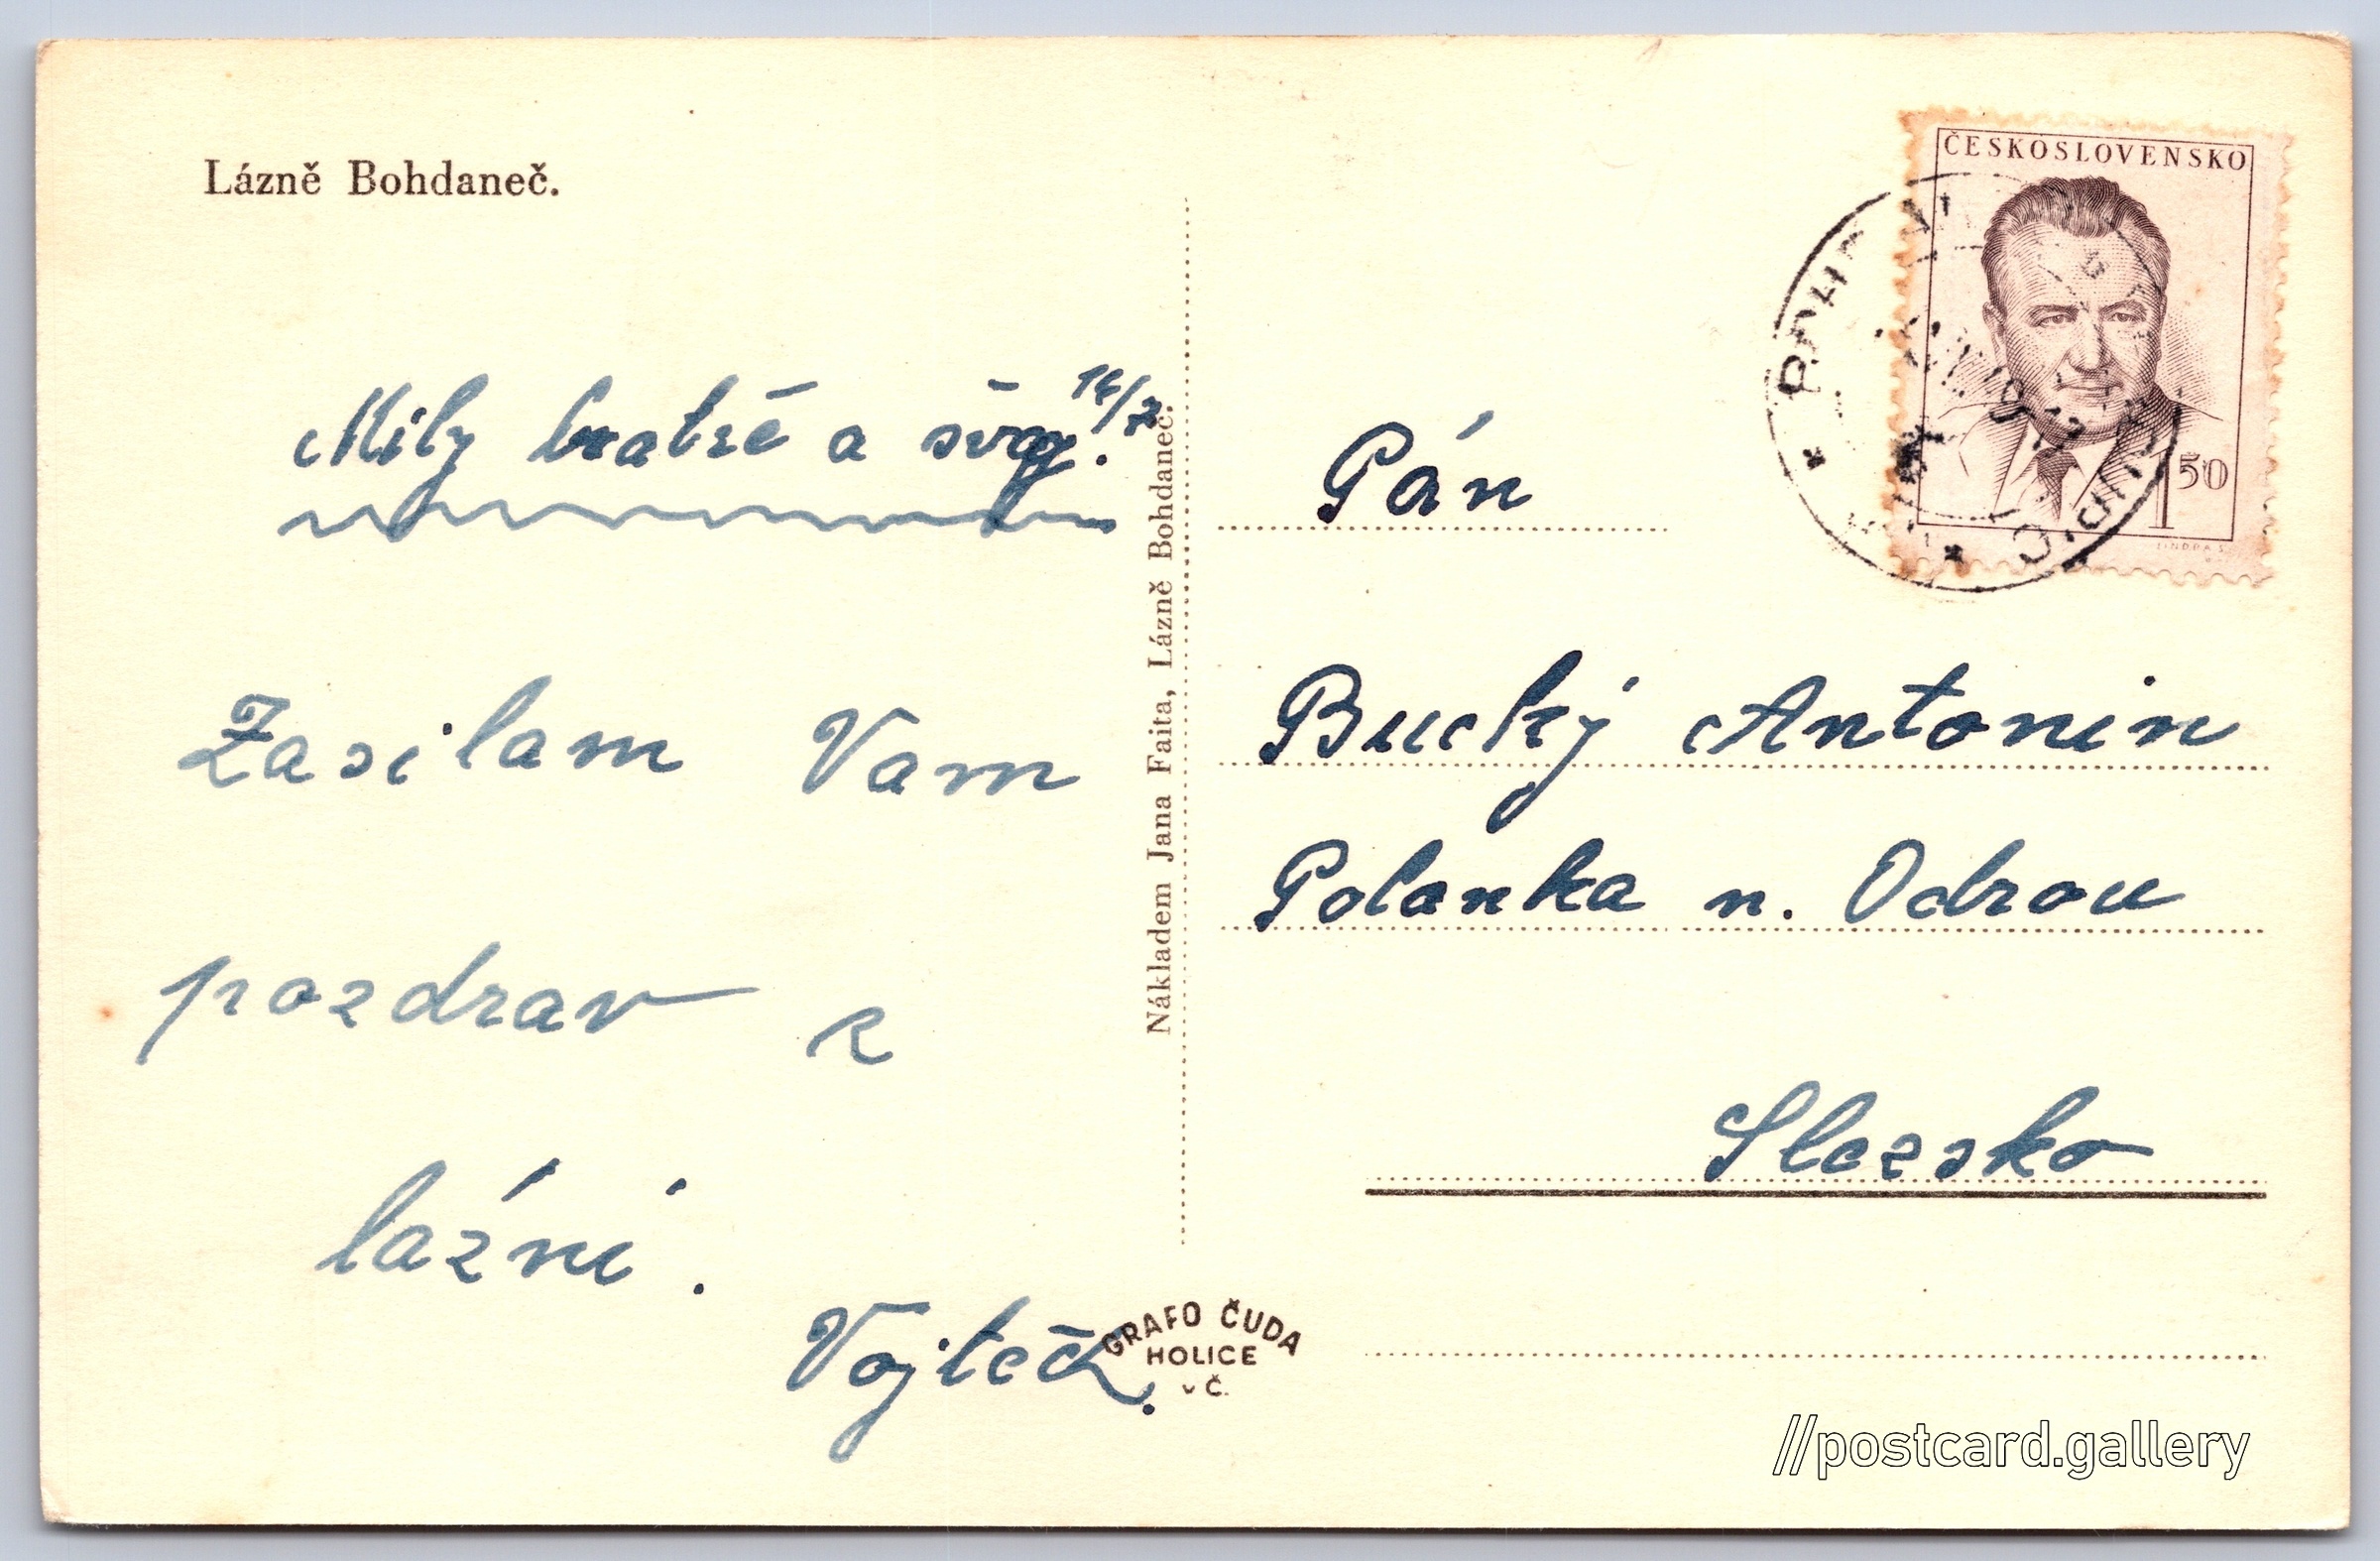 Lázně Bohdaneč.
14/7.
Milý bratře a švag.!
Zasilam Vam
pozdrav z
lázní.
Vojtěch.
Nákladem Jana Faita, Lázně Bohdaneč.
GRAFO ČUDA
HOLICE
v Č.
ČESKOSLOVENSKO
1 50
JINDRA S.
Pán
Bucký Antonin
Polanka n. Odrou
Slezsko
//postcard.gallery